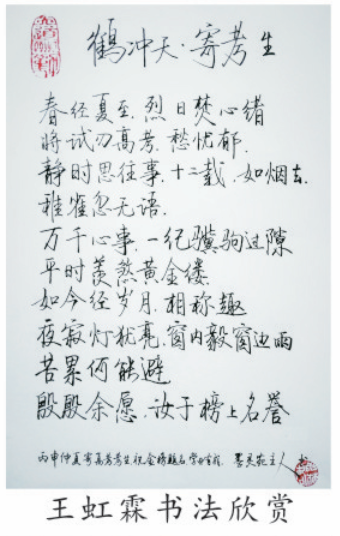 鹤冲天·寄考生
春经夏至.烈日焚心绪
將试刀高考.愁忧郁.
静时思往事.十二载.如烟去.
稚雀忽无语.
万千心事.一纪骥驹过隙
平时羡煞黄金缕.
如今经岁月.相称趣
夜寂灯犹亮.窗内毅窗边雨
苦累何能避
殷殷余愿.汝于榜上名誉
丙申仲夏寄高考考生祝金榜题名 主人
王虹霖书法欣赏